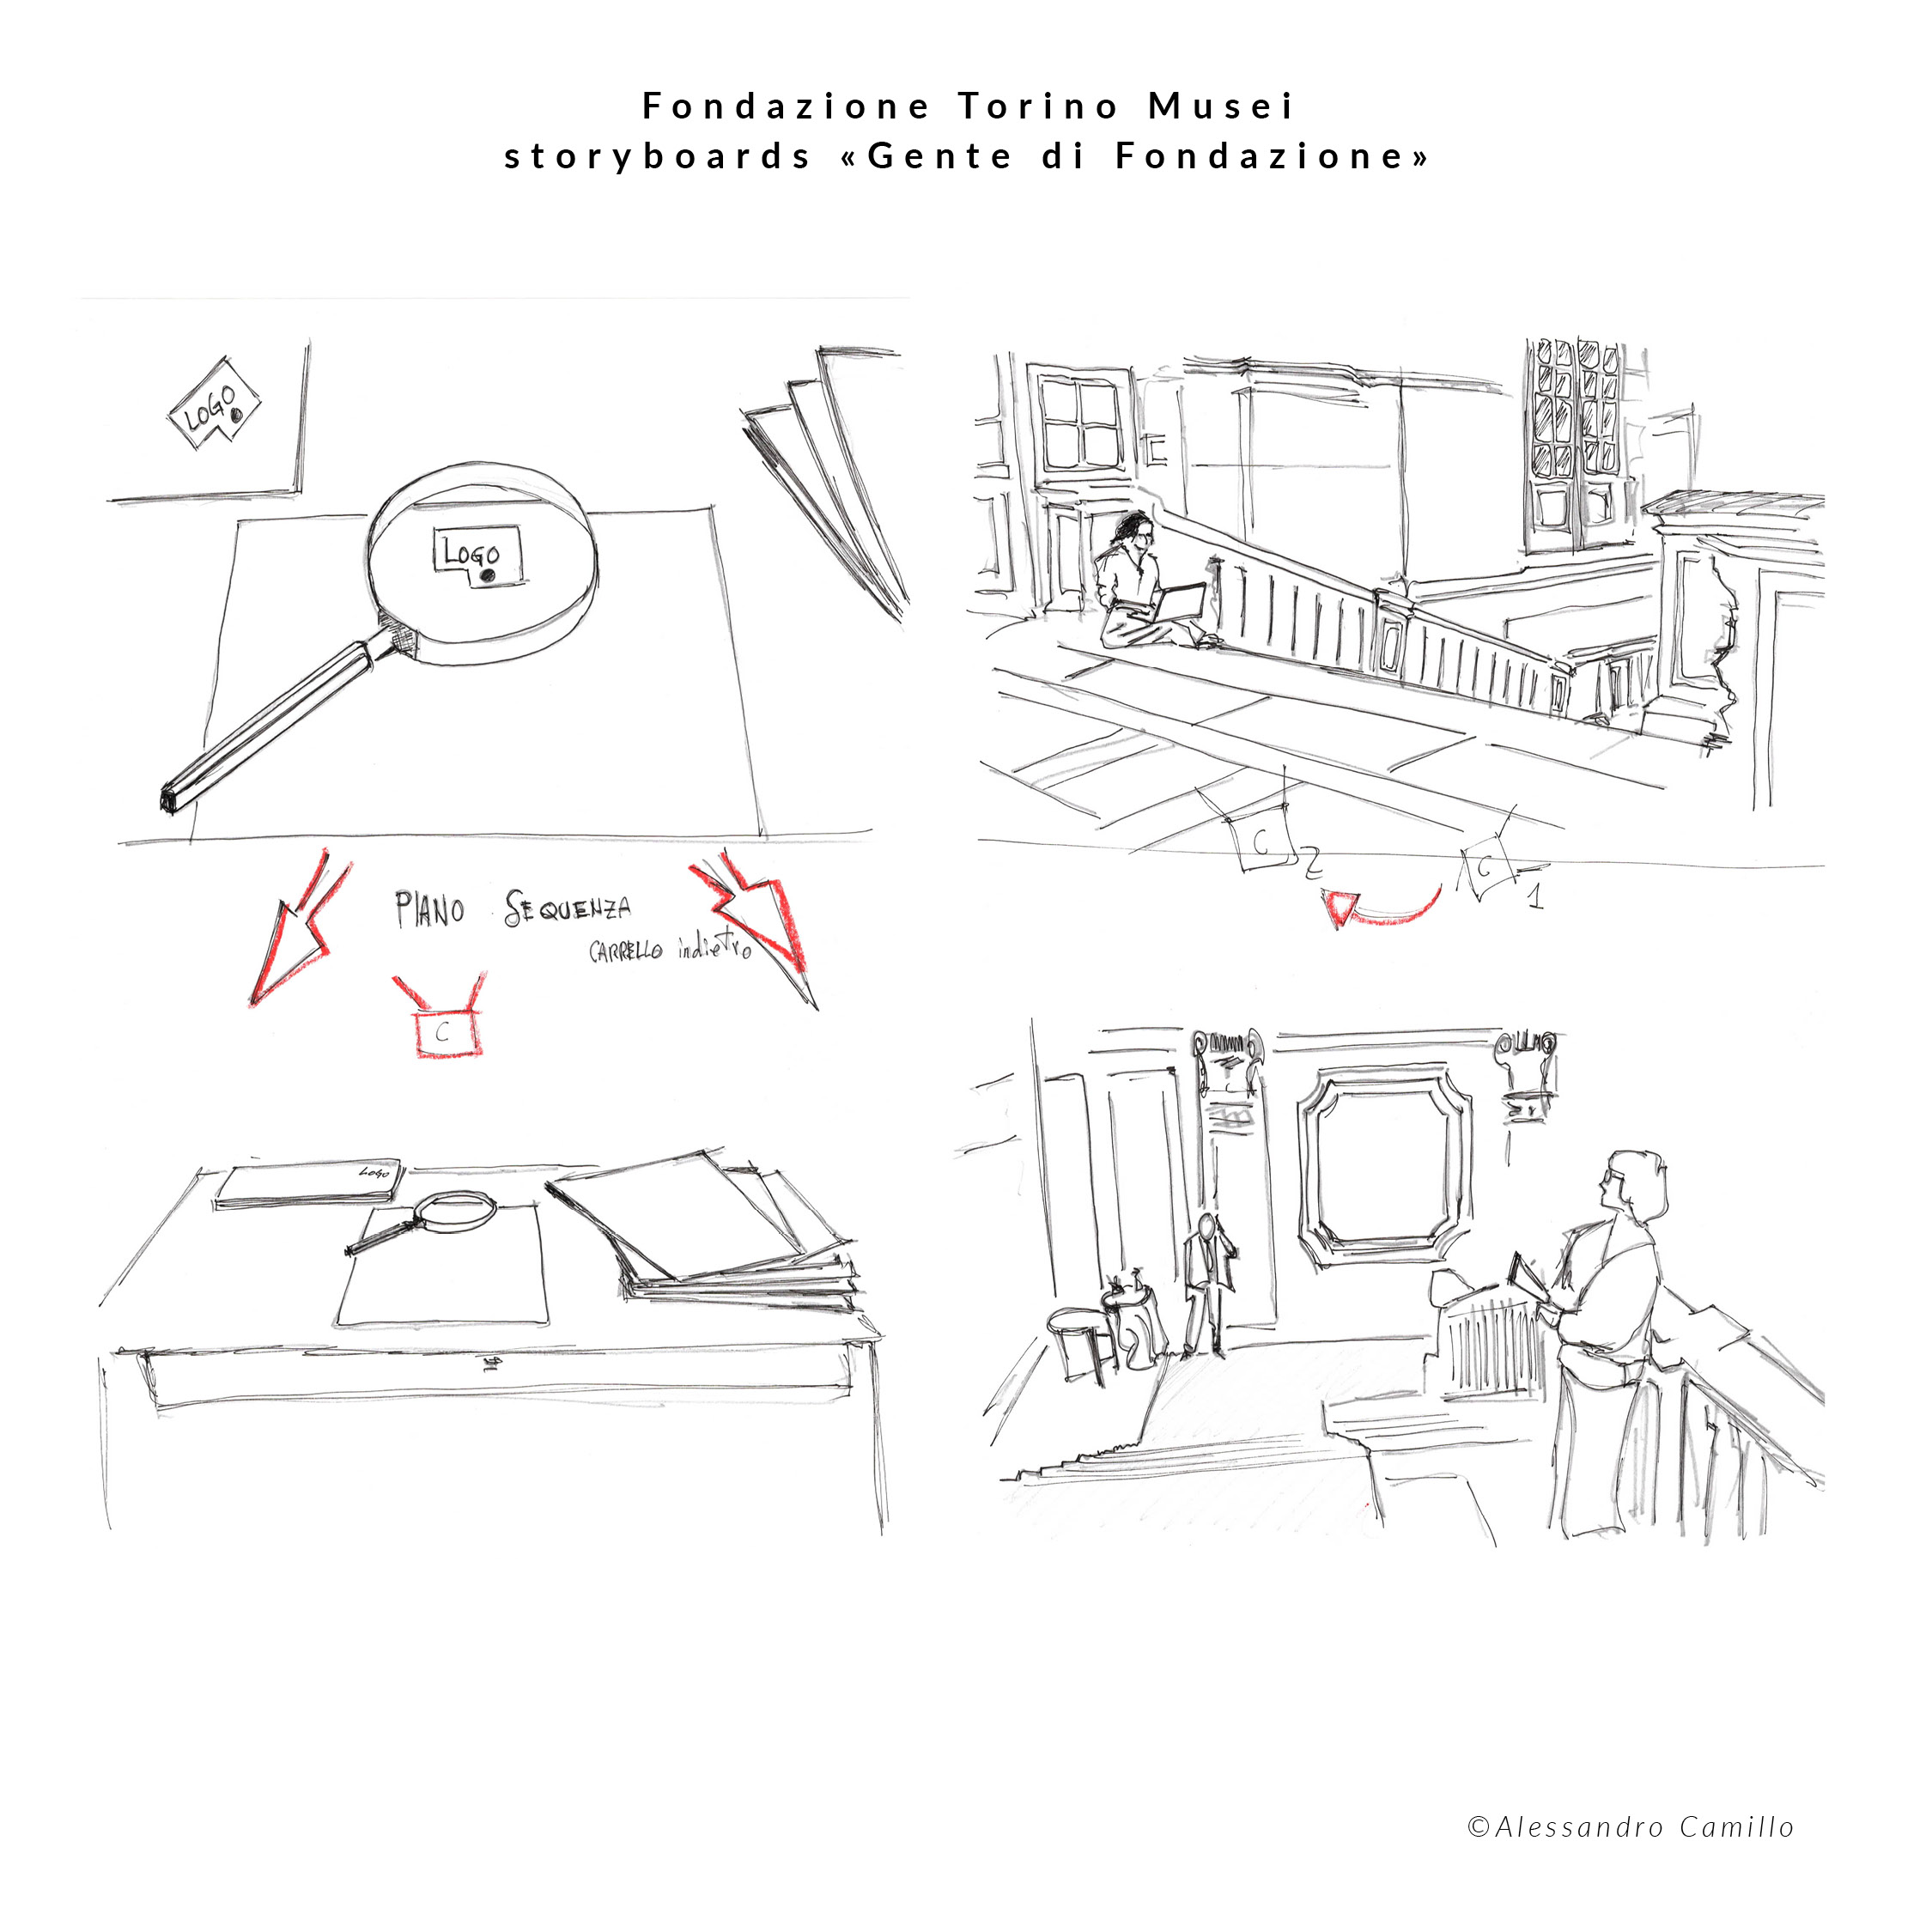 Fondazione Torino Musei
storyboards «Gente di Fondazione»
LOGO
LOGO
PIANO SEQUENZA
CARRELLO indietro
C
LOGO
C
2
C
1
©Alessandro Camillo